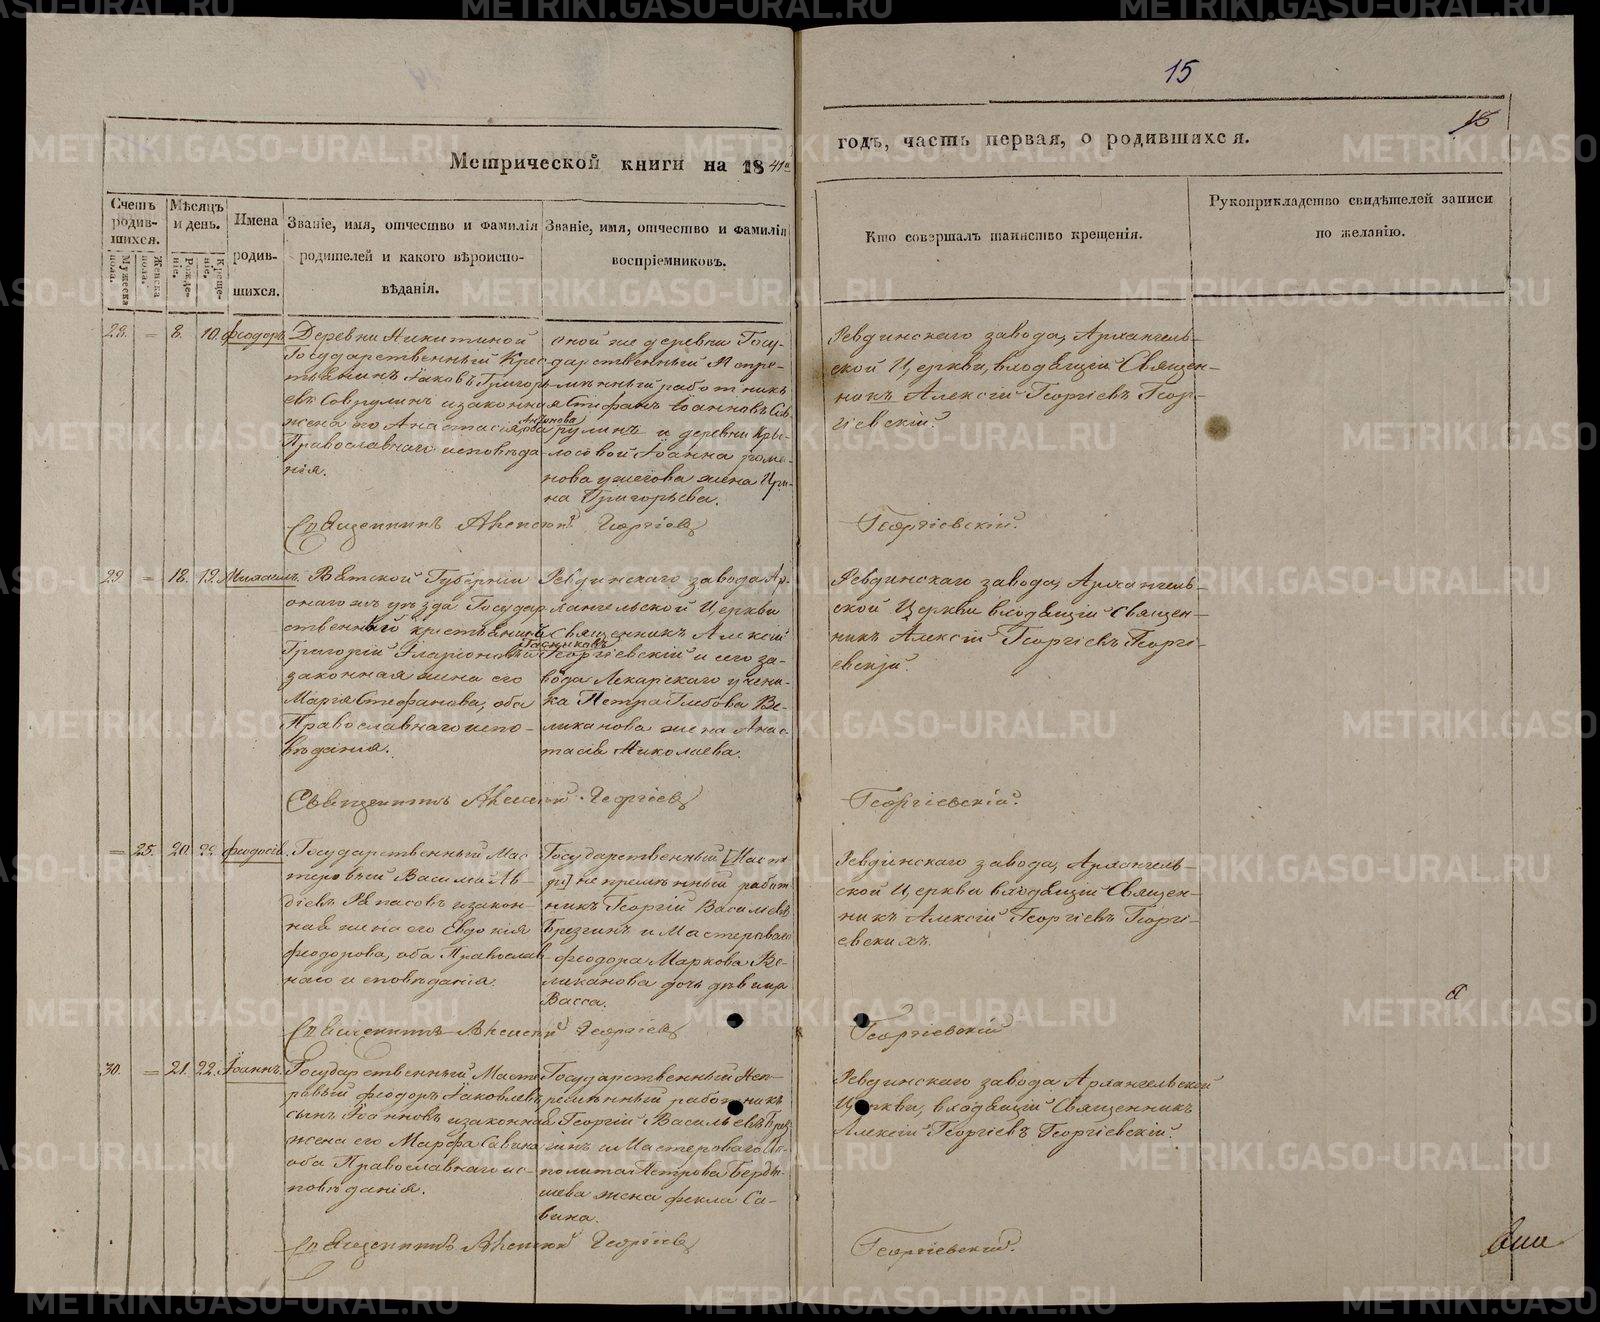 15
15
Метрической книги на 1841й
годъ, часть первая, о родившихся.
Счетъ родив-шихся.
Мужеска пола.
Женска пола.
Мѣсяцъ и день.
Рожде-ніе.
Креще-ніе.
Имена родив-шихся.
Званіе, имя, отчество и фамилія
родителей и какого вѣроиспо-
вѣданія.
Званіе, имя, отчество и фамилія
воспріемниковъ.
Кто совершалъ таинство крещенія.
Рукоприкладство свидѣтелей записи
по желанію.
28. = 8. 10. Ѳеодоръ
Деревни Никитиной
Государственный Крес-
тьянинъ Іаковъ Григорь-
евъ Соврулинъ и законная
жена его Анастасія Антонова оба
Православнаго исповѣда-
нія.
Священникъ Алексій Георгіевъ
той же деревни Госу-
дарственный Непре-
мѣнный работникъ
Стефанъ Іоанновъ Сов-
рулинъ и деревни Кры-
лосовой Іоанна
нова жена Ири-
на Григорьева.
Ревдинскаго завода, Архангель-
ской Церкви, входящій Священ-
никъ Алексій Георгіевъ Геор-
гіевскій.
Георгіевскій.
29 = 18. 19. Михаилъ.
Вятской Губерніи
уѣзда Государ
ственнаго крестьянинъ
Григорій Иларіоновъ и
законная жена его
Марія Стефанова, оба
Православнаго испо-
вѣданія.
Священникъ Алексій Георгіевъ
Ревдинскаго завода Ар-
хангельской Церкви
Священникъ Алексій
Георгіевскій и сего за-
вода Лекарскаго учени-
ка Петра Глебова Ве-
ликанова жена Анас-
тасія Николаева.
Ревдинскаго завода, Архангель-
ской Церкви входящій Священ-
никъ Алексій Георгіевъ Георгі-
евскій.
Георгіевскій.
= 25. 20. 22. Ѳеодосія.
Государственный Мас
теровый Василій Ав-
діевъ Рѣпасовъ и закон-
ная жена его Евдокія
Ѳеодорова, оба Православ-
наго исповѣданія.
Священникъ Алексій Георгіевъ
Государственный
непремѣнный работ
никъ Георгій Васильевъ
Брезгинъ и Мастероваго
Ѳеодора Маркова Ве-
ликанова дочь дѣвица
Васса.
Ревдинскаго завода, Архангель-
ской Церкви входящій Священ-
никъ Алексій Георгіевъ Георгі-
евскихъ.
Георгіевскій
30. = 21. 22. Іоаннъ.
Государственный Масте
ровый Ѳеодоръ Іаковлевъ
сынъ Іоанновъ и законная
жена его Марѳа Савина
оба Православнаго ис-
повѣданія.
Священникъ Алексій Георгіевъ
Государственный Неп-
ремѣнный работникъ
Георгій Васильевъ Брез
гинъ и Мастероваго Ип-
полита Петрова Берды-
шева жена Ѳекла Са-
вина.
Ревдинскаго завода Архангельской
Церкви, входящій Священникъ
Алексій Георгіевъ Георгіевскій.
Георгіевскій.
METRIKI.GASO-URAL.RU